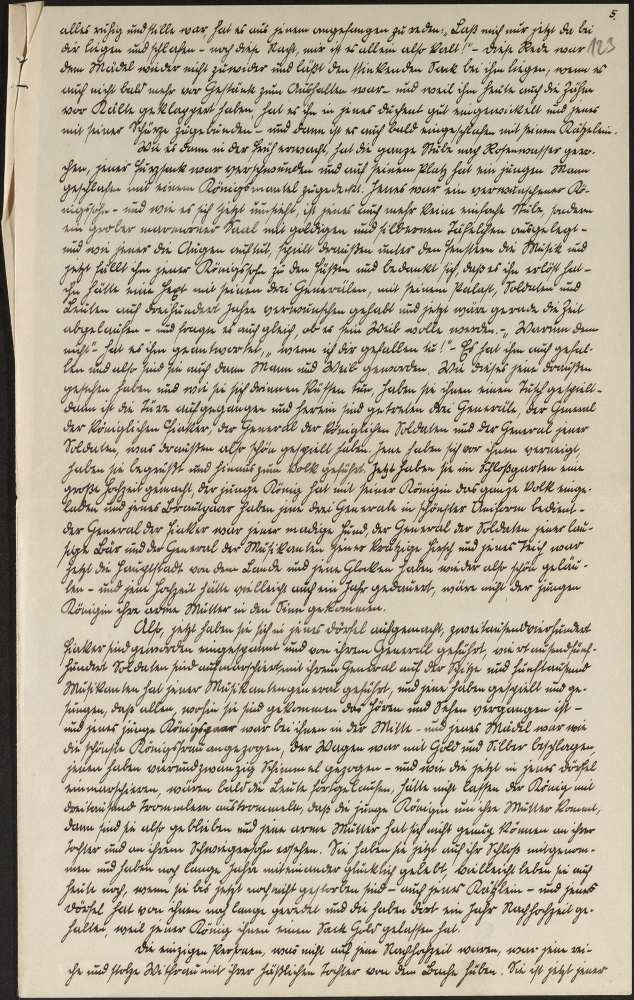 5.
123
alles ruhig und stille war, hat es aus jenem angefangen zu reden: „Laß mich nur jetzt da bei
dir liegen und schlafen - noch diese Nacht, mir ist es allein also kalt!" - Diese Rede war
dem Mädel wieder nicht zuwider und läßt den stinkenden Sack bei ihm liegen, wenn es
auch nicht bald mehr vor Gestank zum Aushalten war - und weil ihm heute auch die Zähne
vor Kälte geklappert haben, hat es ihn in jenes Duchent gut eingewickelt und jenes
mit seiner Schürze zugebunden - und dann ist es auch bald eingeschlafen mit seinem Kätzlein.
Wie es dann in der Früh erwacht, hat die ganze Stube nach Rosenwasser gero-
chen, jener Hurzsack war verschwunden und auf seinem Platz hat ein junger Mann
geschlafen mit einem Königsmantel zugedeckt. Jenes war ein verwunschener Kö-
nigssohn - und wie es sich jetzt umsieht, ist jenes auch mehr keine einfache Stube, sondern
ein großer marmorner Saal mit goldigen und silbernen Täfelchen ausgelegt -
und wie jener die Augen auftut, spielt draußen unter den Fenstern die Musik und
jetzt fällt ihm jener Königssohn zu den Füßen und bedankt sich, daß es ihn erlöst hat -
Ihn hätte eine Hext mit seinen drei Generälen, mit seinem Palast, Soldaten und
Leuten auf dreihundert Jahre verwunschen gehabt und jetzt wäre gerade die Zeit
abgelaufen - und fragte es auch gleich, ob es sein Weib wolle werden. - „Warum denn
nicht" hat es ihm geantwortet, „wenn ich dir gefallen tu!" - Es hat ihm auch gefal-
len und also sind sie auch dann Mann und Weib geworden. Wie dieses jene draußen
gesehen haben und wie sie sich drinnen küssen tun, haben sie ihnen einen Tusch gespielt -
dann ist die Türe aufgegangen und herein sind getreten drei Generäle, der General
der königlichen Fiaker, der General der königlichen Soldaten und der General jener
Soldaten, was draußen also schön gespielt haben. Jene haben sich vor ihnen verneigt,
haben sie begrüßt und hinaus zum Volk geführt. Jetzt haben sie im Schloßgarten eine
große Hochzeit gemacht, der junge König hat mit seiner Königin das ganze Volk einge-
laden und jenes Brautpaar haben jene drei Generäle in schönster Uniform bedient -
der General der Fiaker war jener madige Hund, der General der Soldaten jener lau-
sige Bär und der General der Musikanten jener krätzige Hirsch und jenes Teich war
jetzt die Hauptstadt von dem Lande und jene Glocken haben wieder also schön geläu-
ten - und jene Hochzeit hätte vielleicht auch ein Jahr gedauert, wäre nicht der jungen
Königin ihre arme Mutter in den Sinn gekommen.
Also, jetzt haben sie sich in jenes Dörfel aufgemacht, zweitausendvierhundert
Fiaker sind geworden eingespannt und von ihrem General geführt, viertausendfünf-
hundert Soldaten sind aufmarschiert mit ihrem General auf der Spitze und fünftausend
Musikanten hat jener Musikantengeneral geführt, und jene haben gespielt und ge-
sungen, daß allen, wohin sie sind gekommen das Hören und Sehen vergangen ist -
und jenes junge Königspaar war bei ihnen in der Mitte - und jenes Mädel war wie
die schönste Königsfrau angezogen, der Wagen war mit Gold und Silber beschlagen,
jenen haben vierundzwanzig Schimmel gezogen - und wie die jetzt in jenes Dörfel
einmarschieren, wären bald die Leute fortgelaufen, hätte nicht lassen der König mit
dreitausend Trommlern austrommeln, daß die junge Königin um ihre Mutter kommt,
dann sind sie also geblieben und jene arme Mutter hat sich nicht genug können an ihrer
Tochter und an ihrem Schwiegersohn ersehen. Sie haben sie jetzt auf ihr Schloß mitgenom-
men und haben noch lange Jahre miteinander glücklich gelebt, vielleicht leben sie auch
heute noch, wenn sie bis jetzt noch nicht gestorben sind - auch jener Kätzlein - und jenes
Dörfel hat von ihnen noch lange geredet und die haben dort ein Jahr Nachhochzeit ge-
halten, weil jener König ihnen einen Sack Gold gelassen hat.
Die einzigen Personen, was nicht auf jene Nachhochzeit waren, war jene rei-
che und stolze Witfrau mit ihrer häßlichen Tochter von dem Bache hüben. Sie ist jetzt jener